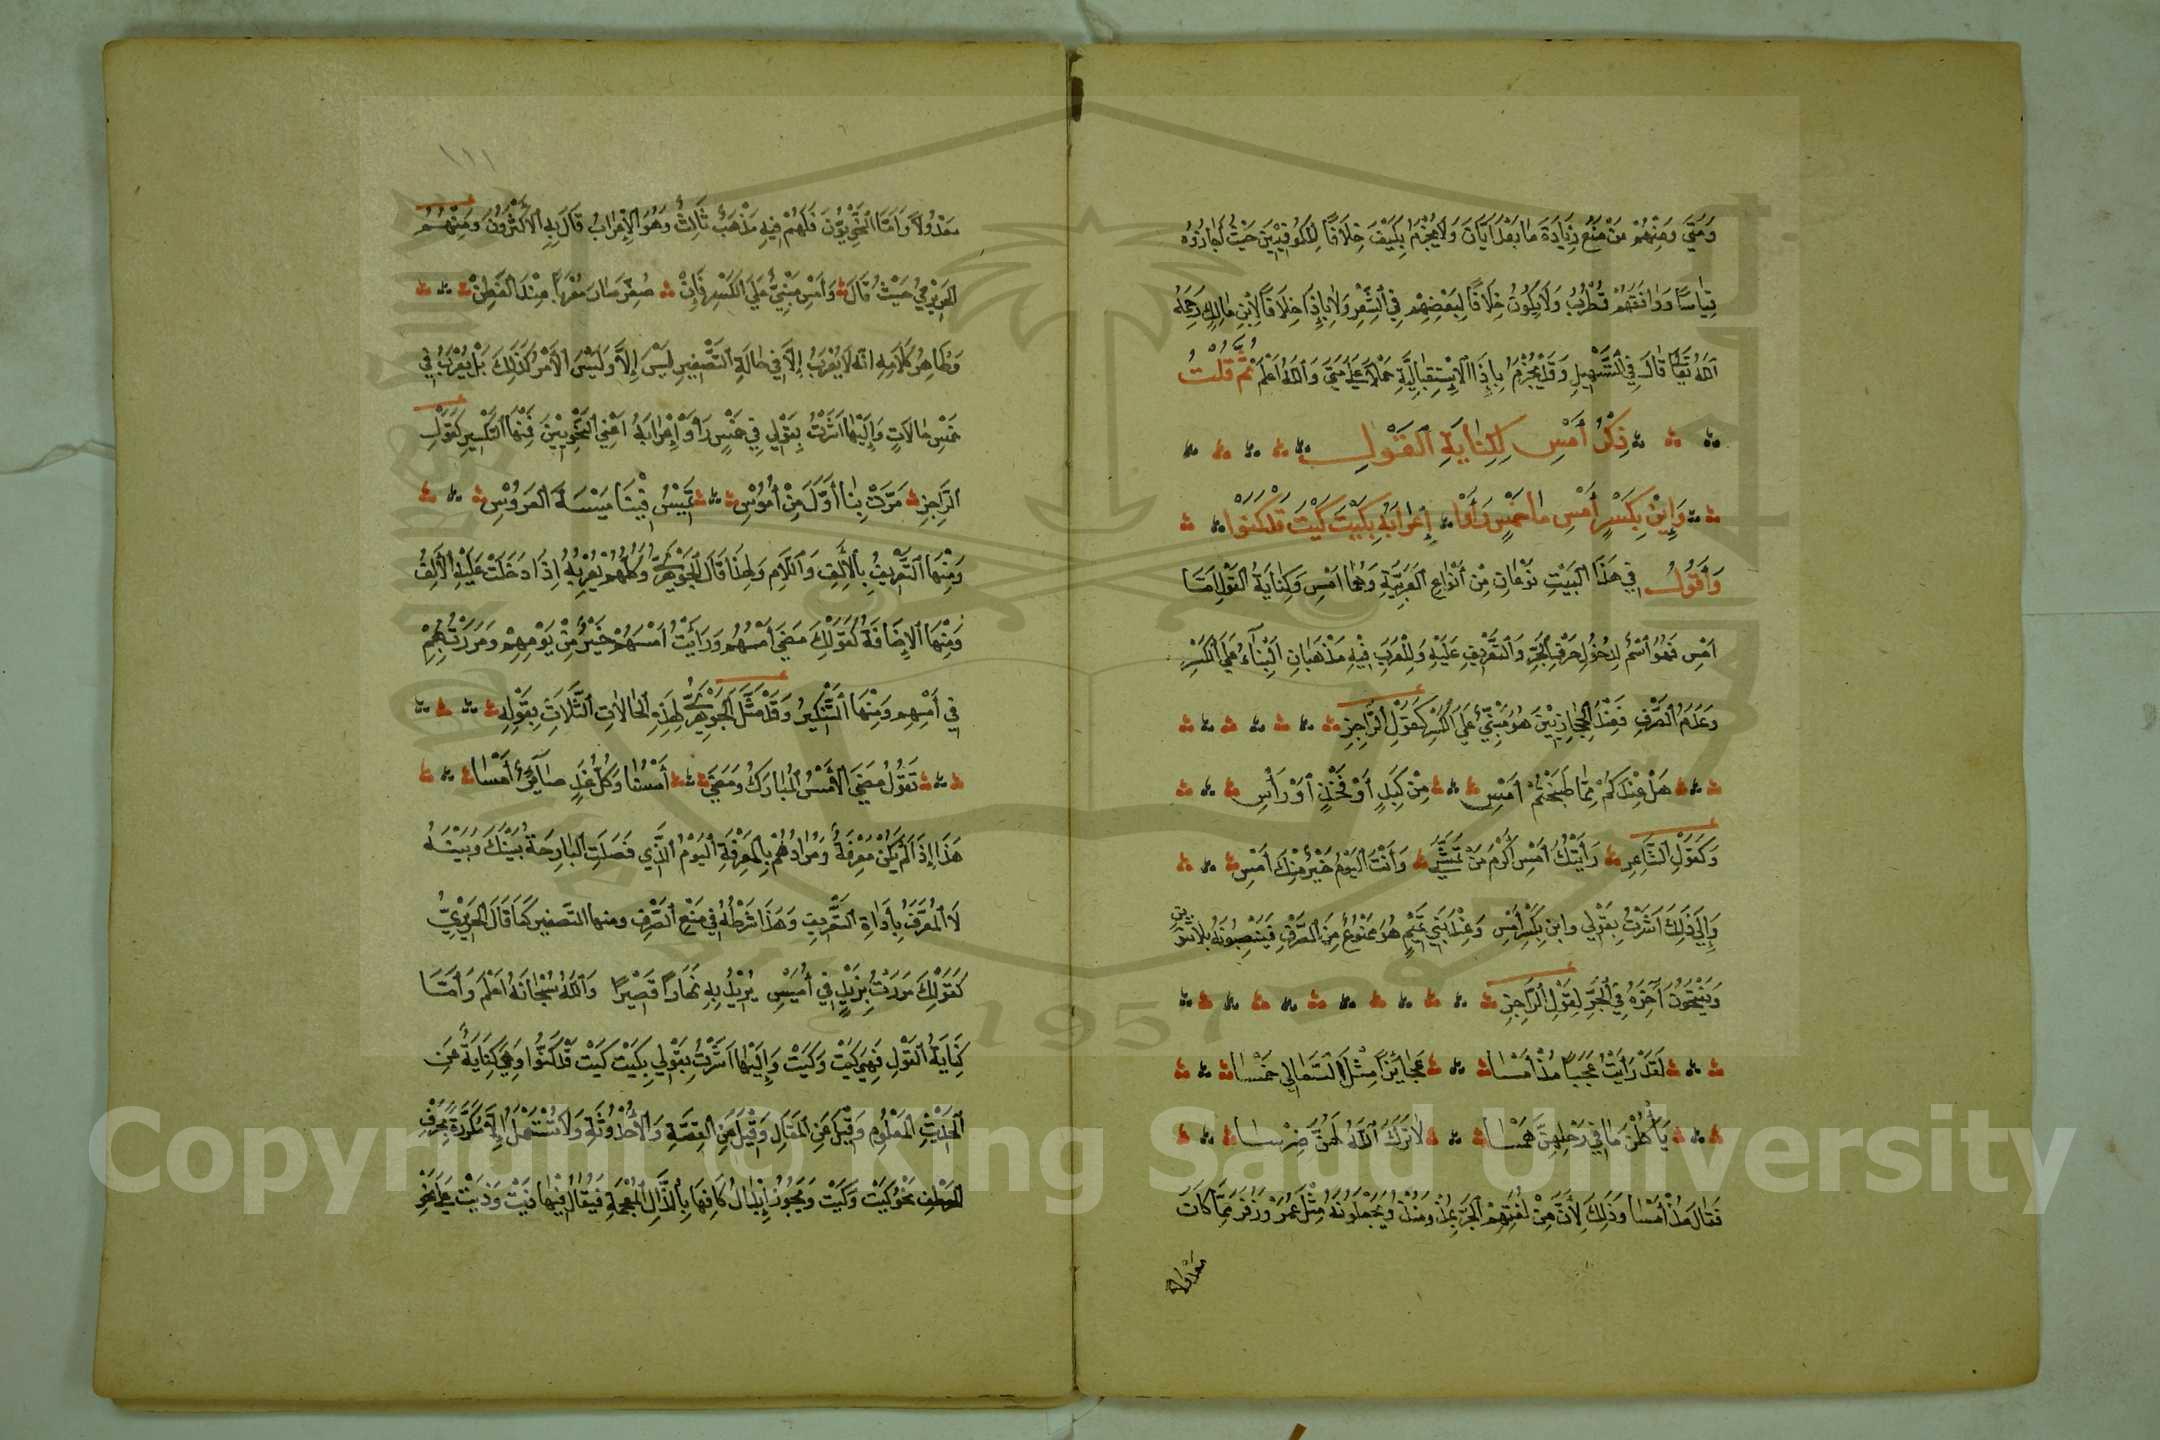 وَمَتَى وَمِنْهُمْ مَنْ مَنَعَ زِيَادَةَ مَا بَعْدَ أَيَّانَ وَلَا يُجْزَمُ بِكَيْفَ خِلَافًا لِلْكُوفِيِّينَ حَيْثُ أَجَازُوهُ
قِيَاسًا وَوَافَقَهُمْ قُطْرُبُ وَلَا يَكُونُ خِلَافًا لِبَعْضِهِمْ فِي الشِّعْرِ وَلَا بِإِذَا خِلَافًا لِابْنِ مَالِكٍ رَحِمَهُ
اللهُ تَعَالَى قَالَ فِي التَّسْهِيلِ وَقَدْ يُجْزَمُ بِإِذَا الِاسْتِقْبَالِيَّةِ حَمْلًا عَلَى مَتَى وَاللهُ أَعْلَمُ ثُمَّ قُلْتُ
ذِكْرُ أَمْسِ لِكِنَايَةِ الْقَوْلِ
وَابْنِ بِكَسْرٍ أَمْسِ مَا خَمْسٍ رَأَوْا إِعْرَابَهُ بِكَيْتَ كَيْتَ قَدْ كَنَوْا
وَأَقُولُ فِي هَذَا الْبَيْتِ نَوْعَانِ مِنْ أَنْوَاعِ الْعَرَبِيَّةِ وَهُمَا أَمْسِ وَكِنَايَةُ الْقَوْلِ أَمَّا
أَمْسِ فَهُوَ اسْمٌ لِدُخُولِ حَرْفِ الْجَرِّ وَالتَّعْرِيفِ عَلَيْهِ وَلِلْعَرَبِ فِيهِ مَذْهَبَانِ الْبِنَاءُ عَلَى الْكَسْرِ
وَعَدَمُ الصَّرْفِ فَعِنْدَ الْحِجَازِيِّينَ هُوَ مَبْنِيٌّ عَلَى الْكَسْرِ كَقَوْلِ الرَّاجِزِ
هَلْ عِنْدَكُمْ مِمَّا طَبَخْتُمْ أَمْسِ مِنْ كَبِدٍ أَوْ فَخْذٍ أَوْ رَأْسِ
وَكَقَوْلِ الشَّاعِرِ رَأَيْتُكَ أَمْسِ أَكْرَمَ مَنْ تَمَشَّى وَأَنْتَ الْيَوْمَ خَيْرٌ مِنْكَ أَمْسِ
وَإِلَى ذَلِكَ أَشَرْتُ بِقَوْلِي وَابْنِ بِكَسْرٍ أَمْسِ وَعِنْدَ بَنِي تَمِيمٍ هُوَ مَمْنُوعٌ مِنَ الصَّرْفِ فَيَنْصِبُونَهُ بِلَا تَنْوِينٍ
وَيَفْتَحُونَ آخِرَهُ فِي الْجَرِّ لِقَوْلِ الرَّاجِزِ
لَقَدْ رَأَيْتُ عَجَبًا مُذْ أَمْسَا عَجَائِزًا مِثْلَ السَّعَالِي خَمْسَا
يَأْكُلْنَ مَا فِي رَحْلِهِنَّ هَمْسَا لَا تَرَكَ اللهُ لَهُنَّ ضِرْسَا
فَقَالَ مُذْ أَمْسَا وَذَلِكَ لِأَنَّ مِنْ لُغَتِهِمْ الْجَرَّ بِمُذْ وَمُنْذُ وَيَجْعَلُونَهُ مِثْلَ عُمَرَ وَزُفَرَ مِمَّا كَانَ
معدولا
١١١
مَعْدُولًا وَأَمَّا النَّحْوِيُّونَ فَلَهُمْ فِيهِ مَذْهَبٌ ثَالِثٌ وَهُوَ الْإِعْرَابُ قَالَ بِهِ الْأَكْثَرُونَ وَمِنْهُمُ
الْحَرِيرِيُّ حَيْثُ قَالَ وَأَمْسِ مَبْنِيٌّ عَلَى الْكَسْرِ فَإِنْ صُغِّرَ صَارَ مُعْرَبًا عِنْدَ الْفَطِنْ
وَظَاهِرُ كَلَامِهِ أَنَّهُ لَا يُعْرَبُ إِلَّا فِي حَالَةِ التَّصْغِيرِ لَيْسَ إِلَّا وَلَيْسَ الْأَمْرُ كَذَلِكَ بَلْ يُعْرَبُ فِي
خَمْسِ حَالَاتٍ وَإِلَيْهَا أَشَرْتُ بِقَوْلِي فِي خَمْسٍ رَأَوْا إِعْرَابَهُ أَعْنِي النَّحْوِيِّينَ فَمِنْهَا التَّكْسِيرُ كَقَوْلِ
الرَّاجِزِ مَرَّتْ بِنَا أَوَّلَ مِنْ أُمُوسِ تَمِيسُ فِينَا مَيْسَةَ الْعَرُوسِ
وَمِنْهَا التَّعْرِيفُ بِالْأَلِفِ وَاللَّامِ وَلِهَذَا قَالَ الْجَوْهَرِيُّ وَكُلُّهُمْ يُعْرِبُهُ إِذَا دَخَلَتْ عَلَيْهِ الْأَلِفُ
وَمِنْهَا الْإِضَافَةُ كَقَوْلِكَ مَضَى أَمْسُهُمْ وَرَأَيْتُ أَمْسَهُمْ خَيْرٌ مِنْ يَوْمِهِمْ وَمَرَرْتُ بِهِمْ
فِي أَمْسِهِمْ وَمِنْهَا التَّنْكِيرُ وَقَدْ مَثَّلَ الْجَوْهَرِيُّ لِهَذِهِ الْحَالَاتِ الثَّلَاثِ بِقَوْلِهِ
تَقُولُ مَضَى الْأَمْسُ الْمُبَارَكُ وَمَضَى أَمْسُنَا وَكُلُّ غَدٍ صَائِرٌ أَمْسًا
هَذَا إِذَا لَمْ يَكُنْ مَعْرِفَةً وَمُرَادُهُمْ بِالْمَعْرِفَةِ الْيَوْمُ الَّذِي فَصَلَتِ الْبَارِحَةُ بَيْنَكَ وَبَيْنَهُ
لَا الْمُعَرَّفُ بِأَدَاةِ التَّعْرِيفِ وَهَذَا شَرْطُهُ فِي مَنْعِ الصَّرْفِ ومنها التصغير كَمَا قَالَ الْحَرِيرِيُّ
كَقَوْلِكَ مَرَرْتُ بِزَيْدٍ فِي أُمَيْسٍ يُرِيدُ بِهِ نَهَارًا قَصِيرًا وَاللهُ سُبْحَانَهُ أَعْلَمُ وَأَمَّا
كِنَايَةُ الْقَوْلِ فَهِيَ كَيْتَ وَكَيْتَ وَإِلَيْهَا أَشَرْتُ بِقَوْلِي بِكَيْتَ كَيْتَ قَدْ كَنَوْا وَهِيَ كِنَايَةٌ عَنِ
الْحَدِيثِ الْمَعْلُومِ وَقِيلَ عَنِ الْمَقَالِ وَقِيلَ عَنِ الْقِصَّةِ وَالْأُحْدُوثَةِ وَلَا تُسْتَعْمَلُ إِلَّا مُكَرَّرَةً بِحَرْفِ
الْعَطْفِ نَحْوُ كَيْتَ وَكَيْتَ وَيَجُوزُ إِبْدَالُ كَافِهَا بِالذَّالِ الْمُعْجَمَةِ فَيُقَالُ فِيهَا ذَيْتَ وَذَيْتَ عَلَى نَحْوِ
Copyright © King Saud University
1957